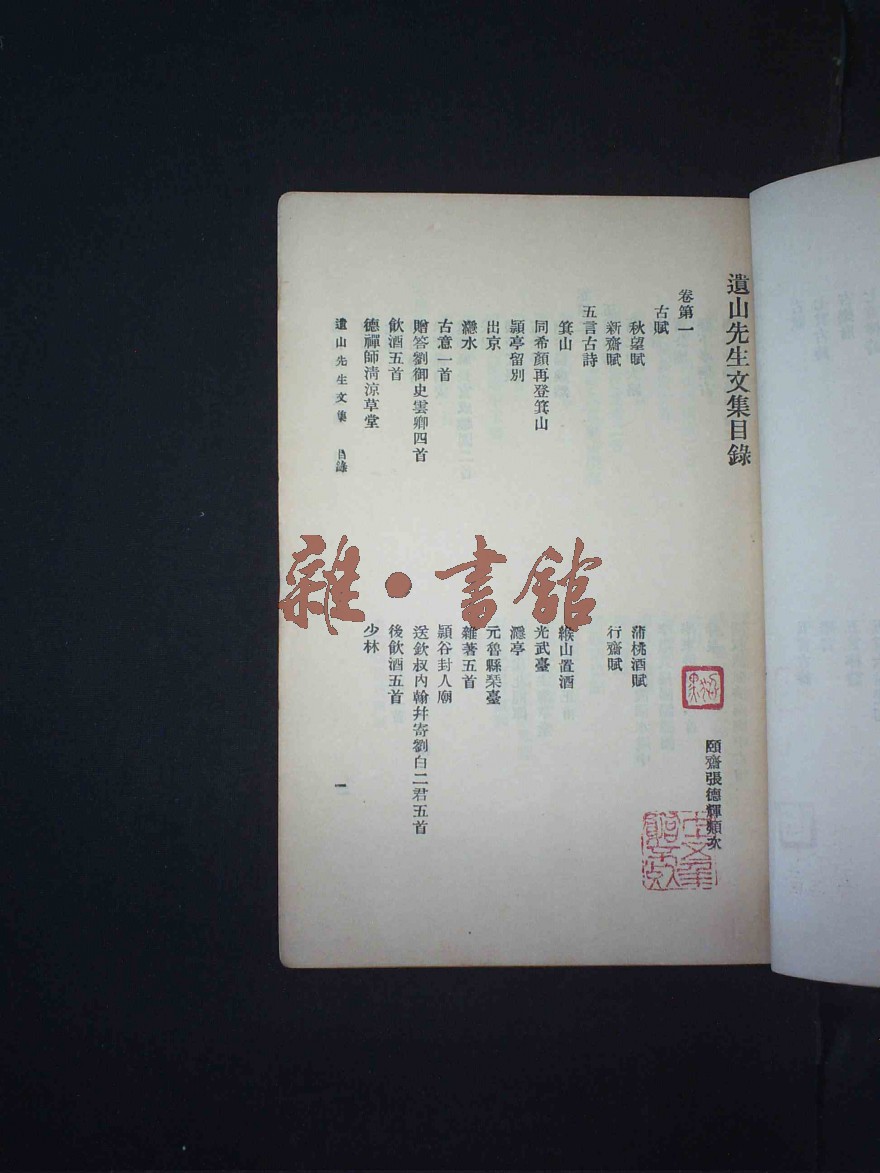 遺山先生文集目錄
頤齋張德輝類次
卷第一
古賦
秋望賦
蒲桃酒賦
新齋賦
行齋賦
五言古詩
箕山
緱山置酒
同希顏再登箕山
光武臺
潁亭留別
㶏亭
出京
元魯縣琴臺
㶏水
雜著五首
古意一首
潁谷封人廟
贈答劉御史雲卿四首
送欽叔內翰幷寄劉白二君五首
飮酒五首
後飮酒五首
德禪師淸涼草堂
少林
遺山先生文集 目錄
一
雜·書館